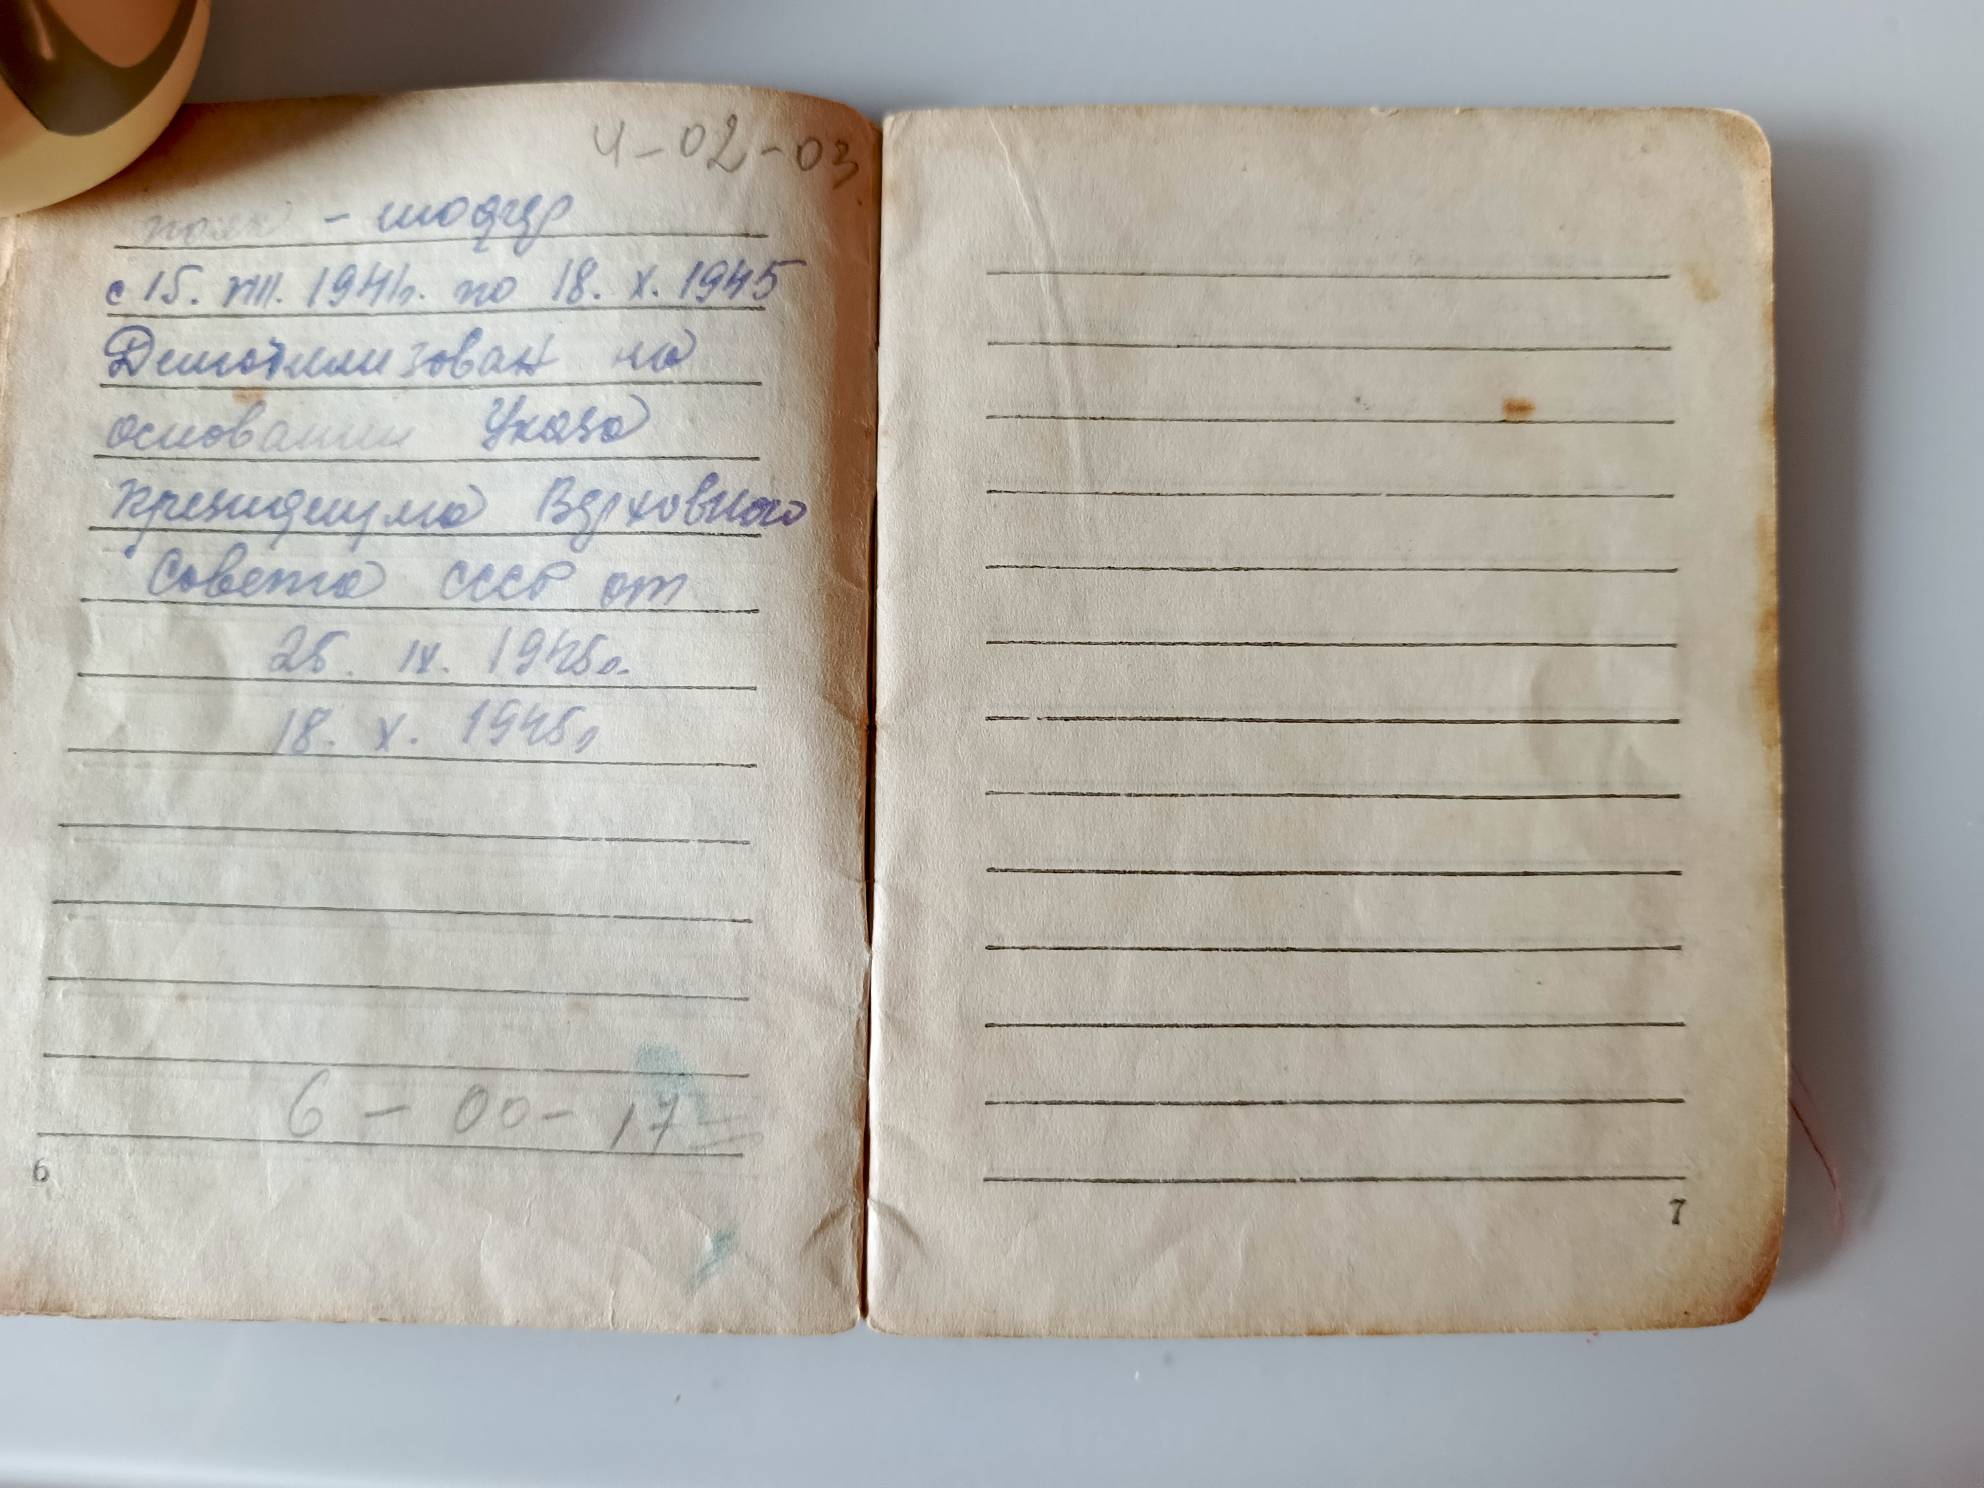 4-02-03
полк - шофер
с 15. VIII. 1941г. по 18. X. 1945
Демобилизован на
основании Указа
президиума Верховного
Совета СССР от
25. IX. 1945г.
18. X. 1945г
6 - 00 - 17
6
7